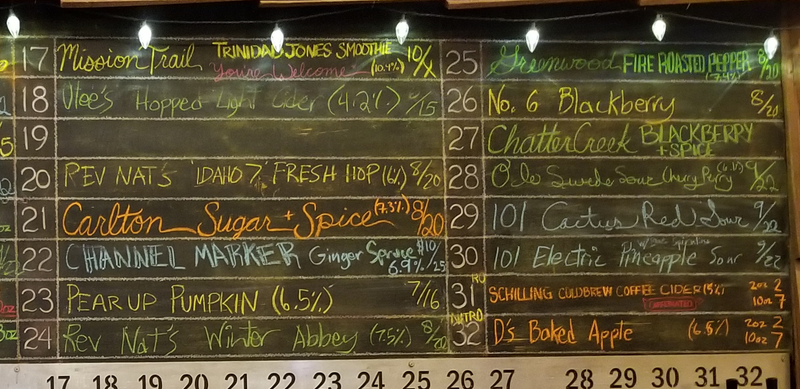 17 Mission Trail TRINIDAD JONES SMOOTHIE 10/X
You're Welcome (10.4%)
18 Vlee's Hopped Light Cider (4.2%) /15
19
20 REV NAT'S 'IDAHO 7' FRESH HOP (6%) 8/20
21 Carlton Sugar + Spice (7.3%) 8/20
22 CHANNEL MARKER Ginger Spruce $10/
6.9% /25
23 PEAR UP PUMPKIN (6.5%) 7/16
24 Rev Nat's Winter Abbey (7.5%) 8/20
25 Greenwood FIRE ROASTED PEPPER 8/20
26 No. 6 Blackberry 8/20
27 ChatterCreek BLACKBERRY
+SPICE
28 Ole Swede Sour Cherry 9/22
29 101 Cactus Red Sour 9/22
30 101 Electric Pineapple Sour 9/22
31 SCHILLING COLDBREW COFFEE CIDER (5%) 2oz 2
10oz 7
NITRO
32 D's Baked Apple (6.8%) 2oz 2
10oz 7
17 18 19 20 21 22 23 24 25 26 27 28 29 30 31 32